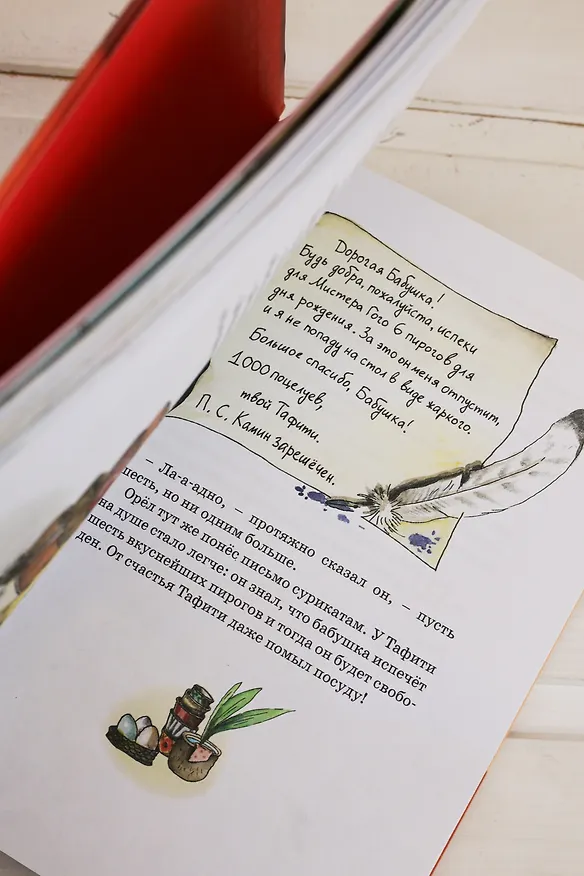 Дорогая Бабушка!
Будь добра, пожалуйста, испеки
для Мистера Гого 6 пирогов для
дня рождения. За это он меня отпустит,
и я не попаду на стол в виде жаркого.
Большое спасибо, Бабушка!
1000 поцелуев,
твой Тафити.
П. С. Камин зарешёчен.
– Ла-а-адно, – протяжно сказал он, – пусть
шесть, но ни одним больше.
Орёл тут же понёс письмо сурикатам. У Тафити
на душе стало легче: он знал, что бабушка испечёт
шесть вкуснейших пирогов и тогда он будет свобо-
ден. От счастья Тафити даже помыл посуду!